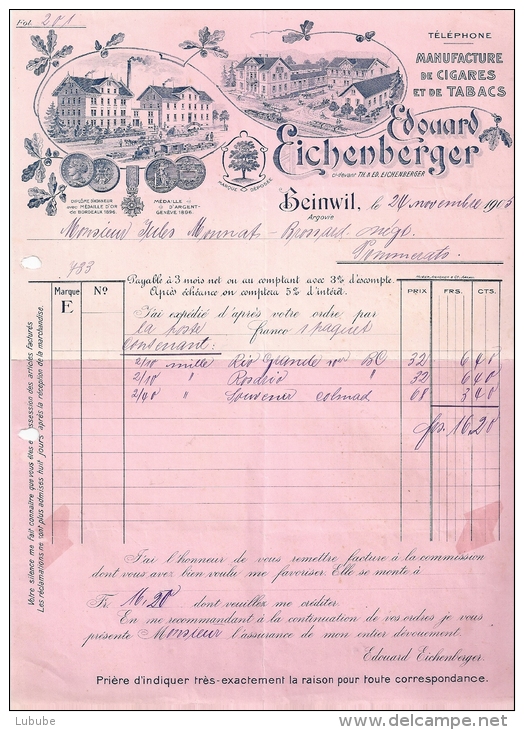 Fol. 201
TÉLÉPHONE
MANUFACTURE
DE CIGARES
ET DE TABACS
Edouard
Eichenberger
ci-devant TH. & ED. EICHENBERGER
MARQUE DÉPOSÉE
DIPLÔME D'HONNEUR
avec MÉDAILLE D'OR
de BORDEAUX 1896.
MÉDAILLE
D'ARGENT-
GENÈVE 1896.
Beinwil, le 24 novembre 1913
Argovie
Monsieur Jules Monnat-Brossard négt.
Pommerats.
Payable à 3 mois net ou au comptant avec 3% d'escompte.
Après échéance on comptera 5% d'intérêt.
Marque
E
No
PRIX
FRS.
CTS.
J'ai expédié d'après votre ordre par
la poste franco 1 paquet
contenant:
2/10 mille Rio Grande BC 32 6 40
2/10 " Rosario " 32 6 40
" Souvenir 68 3 40
frs. 16.20
Votre silence me fait connaître que vous êtes en possession des articles facturés
Les réclamations ne sont plus admises huit jours après la réception de la marchandise.
J'ai l'honneur de vous remettre facture à la commission
dont vous avez bien voulu me favoriser. Elle se monte à
Fr. 16.20 dont veuillez me créditer.
En me recommandant à la continuation de vos ordres je vous
présente Monsieur l'assurance de mon entier dévouement.
Edouard Eichenberger.
Prière d'indiquer très-exactement la raison pour toute correspondance.
Lubube
www.delcampe.net